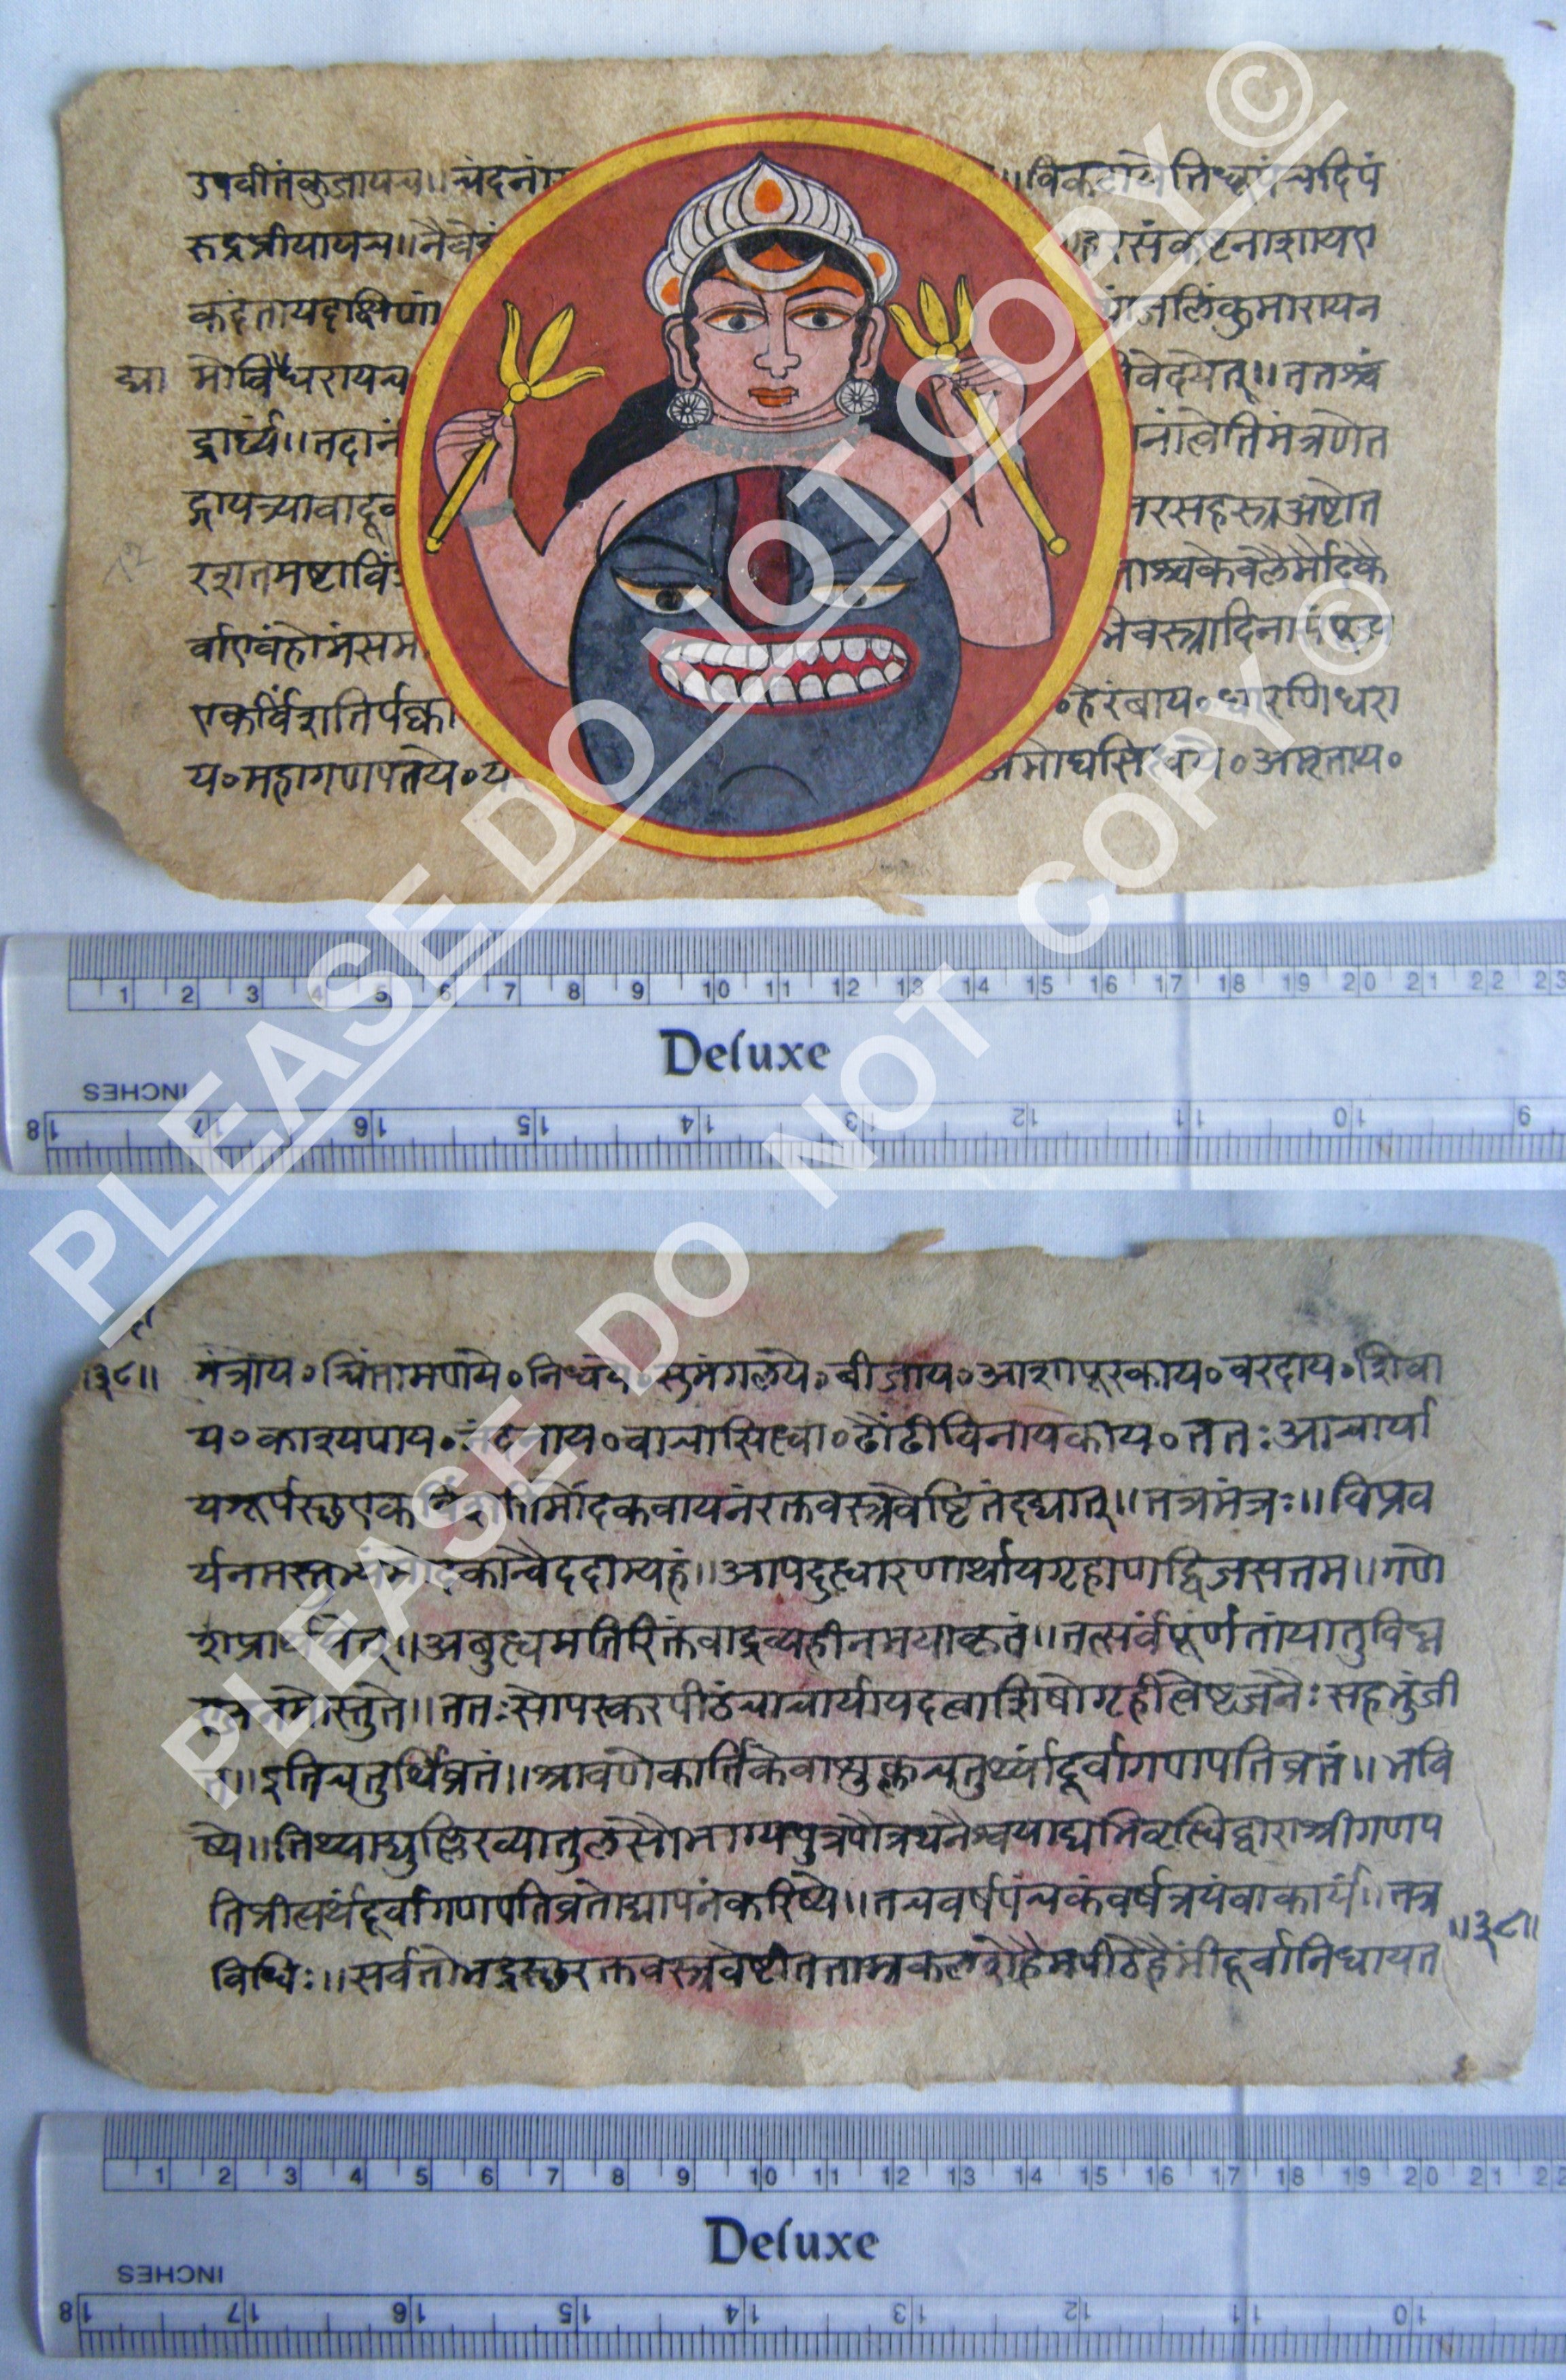 उपवीतंकुजायच॥चंदनां ॥विकटायेतिधूपंचदिपं
रुद्रप्रीयायच॥नैवेद्यं हरसंकष्टनाशायए
कदंतायदक्षिणां जलिंकुमारायन
द्या मोविघ्नरायच वेदयेत्॥ततश्चं
द्रार्घ्यं॥तदानं नांत्वेतिमंत्रणेत
द्गायत्र्यावादूर्व रसहस्त्रअष्टोत
रशतमष्टाविं
र्वाएवंहोमंसम वस्त्रादिना
एकविंशतिर्पक्वा ॰हेरंबाय॰धारणिधरा
य॰महागणपतये॰य अमोघसिद्धये॰अमृताय॰
1 2 3 4 5 6 7 8 9 10 11 12 13 14 15 16 17 18 19 20 21 22 23
Deluxe
INCHES
18 17 16 15 14 13 12 11 10 9
॥३८॥ मंत्राय॰चिंतामणये॰निधये॰सुमंगलये॰बीजाय॰आशापूरकाय॰वरदाय॰शिवा
य॰काश्यपाय॰नंदनाय॰वाचासिध्वा॰ढौंढीविनायकाय॰ततःआचार्या
मोदकवायनंरक्तवस्त्रवेष्टितंदद्यात्॥तत्रमंत्रः॥विप्रव
र्यनमस्तुभ्यंमोदकान्वैददाम्यहं॥आपदुद्धारणार्थायगृहाणद्विजसत्तम॥गणे
शंप्रार्थयेत्॥अबुध्वमतिरिक्तंवाद्रव्यहीनमयाकृतं॥तत्सर्वंपूर्णतांयातुविघ्न
नमोस्तुते॥ततःसोपस्करपीठंचाचार्यायदत्वाशिषोगृहीत्वेष्टजनैःसहभुंजी
त॥इतिचतुर्थिव्रतं॥श्रावणेकार्तिकेवाशुक्लचतुर्थ्यांदूर्वागणपतिव्रतं॥भवि
ष्ये॥तिथ्याद्युल्लिख्यातुलसौभाग्यपुत्रपौत्रधनैश्वर्याद्यभिवृद्धिद्वाराश्रीगणप
तिप्रीत्यर्थंदूर्वागणपतिव्रतोद्यापनंकरिष्ये॥तचवर्षपंचकंवर्षत्रयंवाकार्यं॥तत्र
विधिः॥सर्वतोभद्रस्छरक्तवस्त्रवेष्टीतताम्रकलशेहैमपीठेहैमींदूर्वानिधायत ॥३८॥
1 2 3 4 5 6 7 8 9 10 11 12 13 14 15 16 17 18 19 20 21 22
Deluxe
INCHES
18 17 16 15 14 13 12 11 10
PLEASE DO NOT COPY ©
PLEASE DO NOT COPY ©